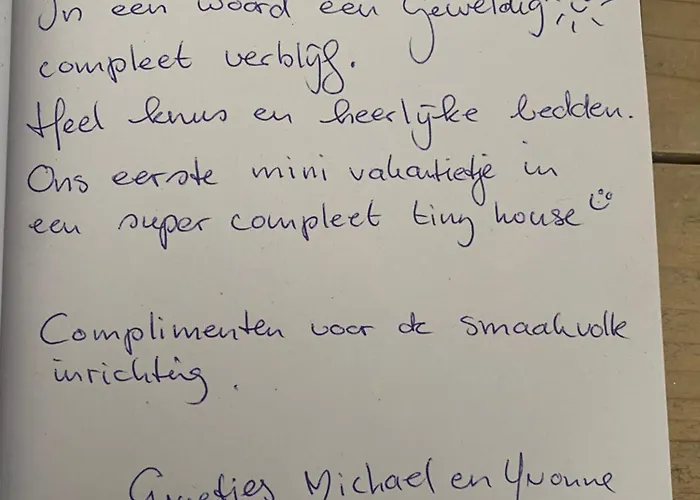 In een woord een Geweldig
compleet verblijf.
Heel knus en heerlijke bedden.
Ons eerste mini vakantietje in
een super compleet tiny house
Complimenten voor de smaakvolle
inrichting.
Groetjes Michael en Yvonne